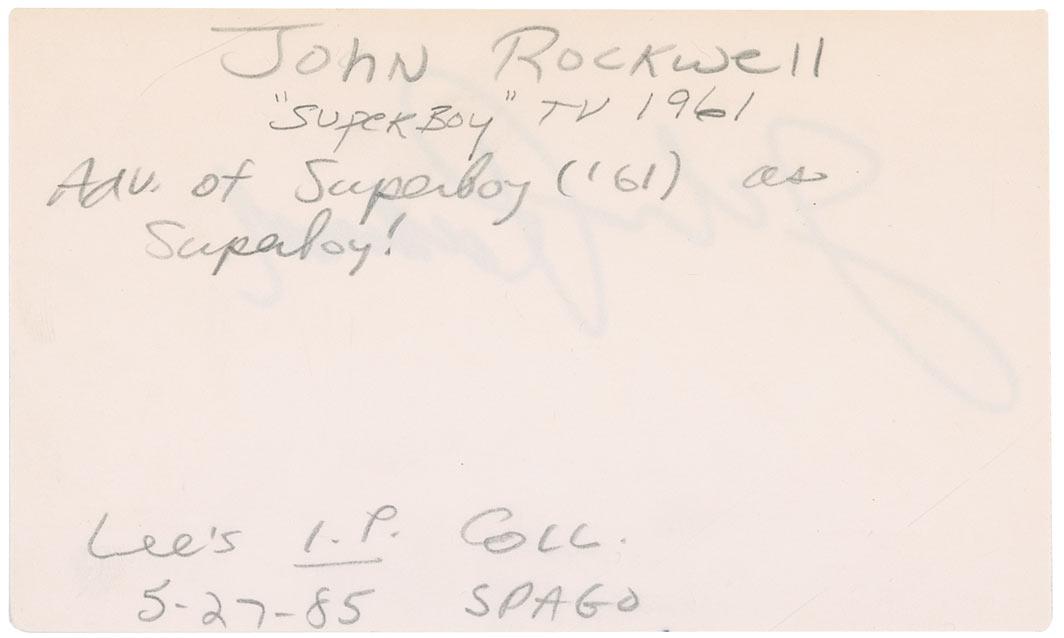 John Rockwell
"Superboy" TV 1961
Adv. of Superboy ('61) as
Superboy!
Lee's I.P. Coll.
5-27-85 SPAGO